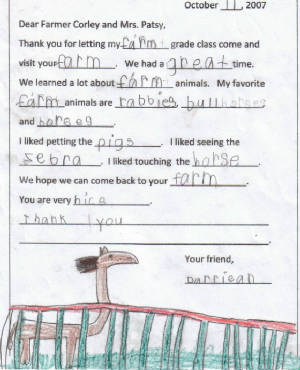 October 11, 2007
Dear Farmer Corley and Mrs. Patsy,
Thank you for letting my farm grade class come and
visit your farm. We had a great time.
We learned a lot about farm animals. My favorite
farm animals are rabbies, bull
and horses.
I liked petting the pigs. I liked seeing the
sebra. I liked touching the horse.
We hope we can come back to your farm.
You are very nice.
Thank you
Your friend,
Darriean